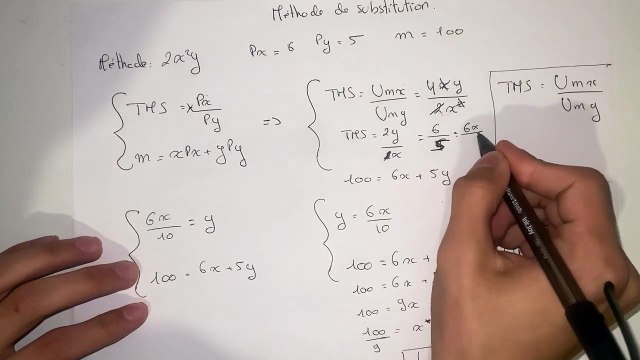 Méthode de substitution.
Méthode: 2x²y Px = 6 Py = 5 m = 100
TMS = Px/Py
m = xPx + yPy
=> TMS = Umx/Umy = 4xy/2x²
TMS = 2y/x = 6/5 = 6x
100 = 6x + 5y
TMS = Umx/Umy
6x/10 = y
100 = 6x + 5y
y = 6x/10
100 = 6x +
100 = 6x
100 = 9x
100/9 = x*